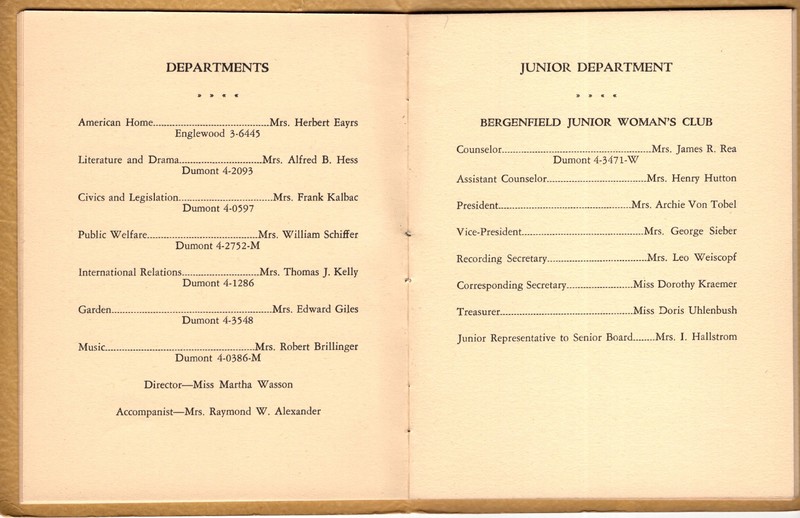 DEPARTMENTS
» » « «
American Home........................................Mrs. Herbert Eayrs
Englewood 3-6445
Literature and Drama............................Mrs. Alfred B. Hess
Dumont 4-2093
Civics and Legislation................................Mrs. Frank Kalbac
Dumont 4-0597
Public Welfare......................................Mrs. William Schiffer
Dumont 4-2752-M
International Relations..........................Mrs. Thomas J. Kelly
Dumont 4-1286
Garden......................................................Mrs. Edward Giles
Dumont 4-3548
Music..................................................Mrs. Robert Brillinger
Dumont 4-0386-M
Director—Miss Martha Wasson
Accompanist—Mrs. Raymond W. Alexander
JUNIOR DEPARTMENT
» » « «
BERGENFIELD JUNIOR WOMAN'S CLUB
Counselor..................................................Mrs. James R. Rea
Dumont 4-3471-W
Assistant Counselor.................................Mrs. Henry Hutton
President.............................................Mrs. Archie Von Tobel
Vice-President.........................................Mrs. George Sieber
Recording Secretary.................................Mrs. Leo Weiscopf
Corresponding Secretary......................Miss Dorothy Kraemer
Treasurer.............................................Miss Doris Uhlenbush
Junior Representative to Senior Board.......Mrs. I. Hallstrom